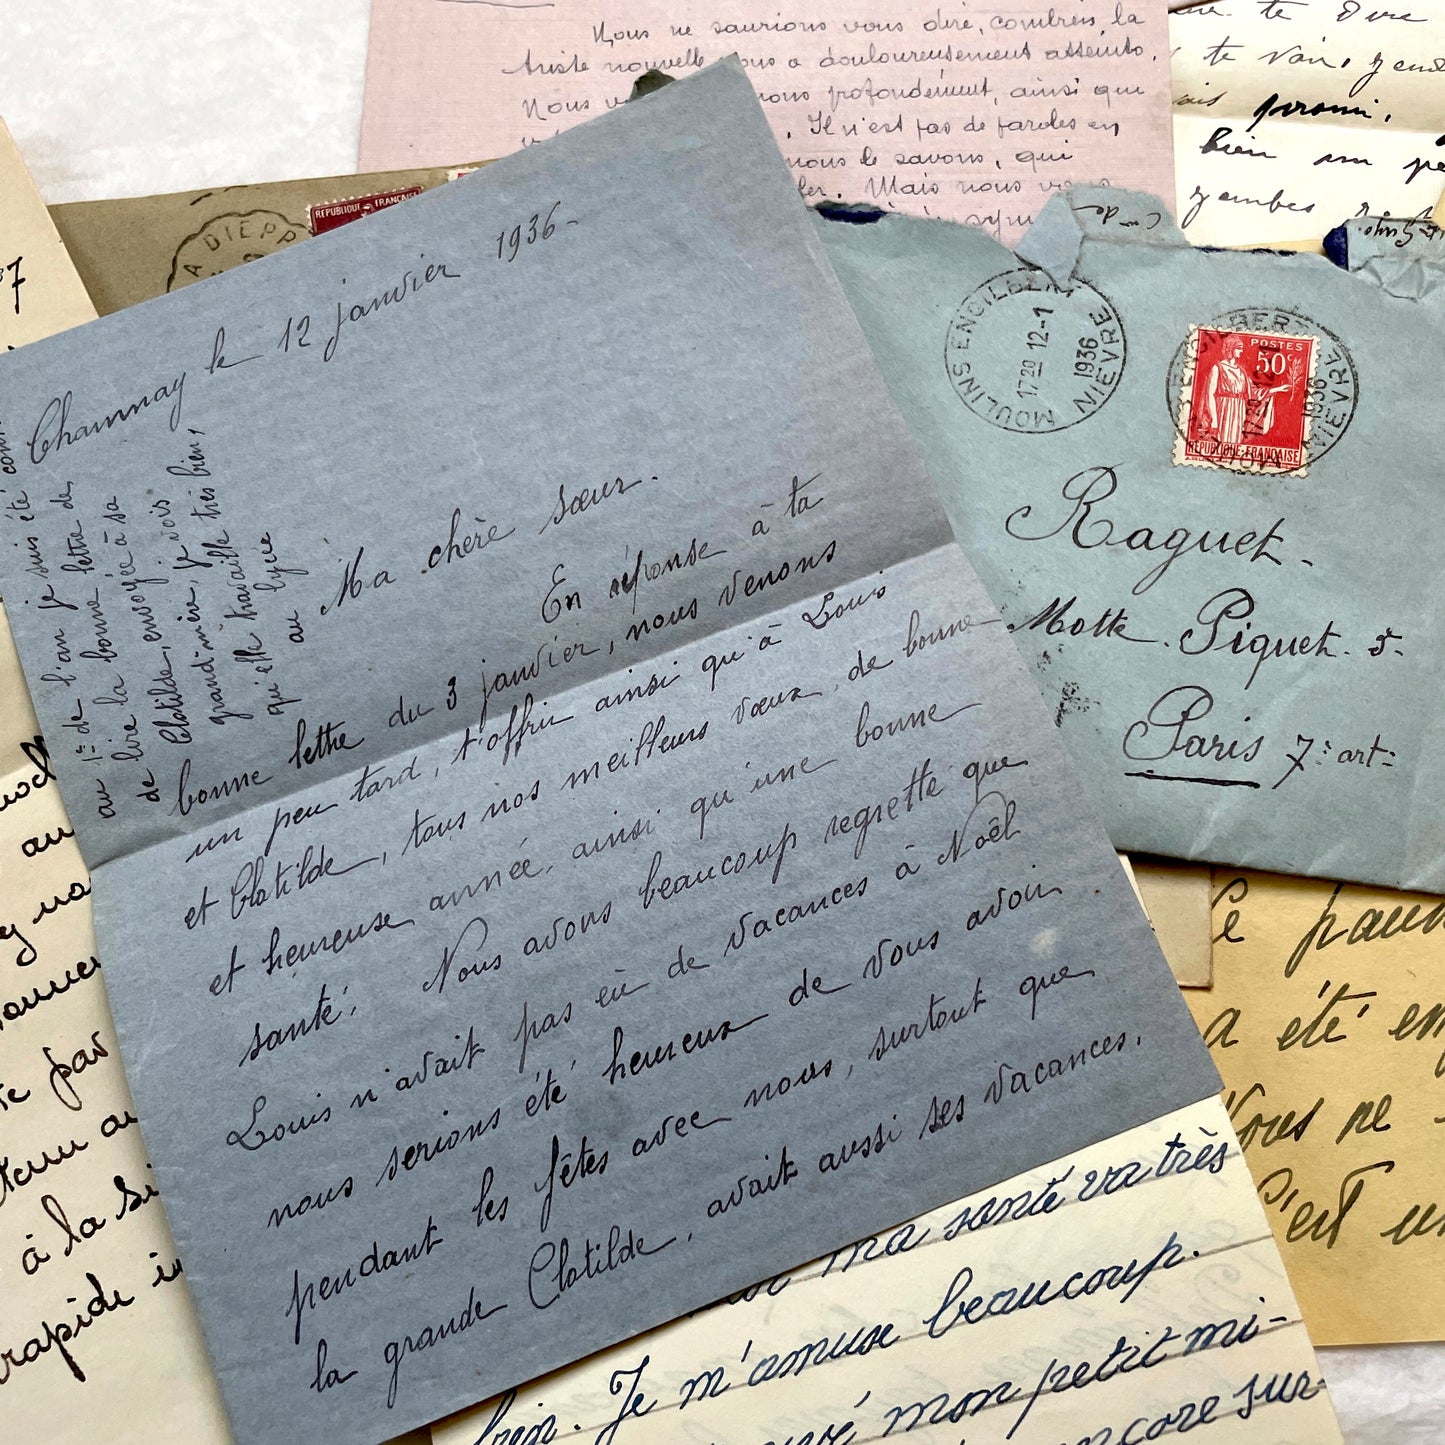 Nous ne saurions vous dire, combien la
triste nouvelle vous a douloureusement atteints.
nous profondément, ainsi que
Il n'est pas de paroles en
nous le savons, qui
Mais nous
te dire
te voir,
promi,
bien un
A DIEPP
REPUBLIQUE FRANÇAISE
Channay le 12 janvier 1936-
Ma chère sœur.
En réponse à ta
bonne lettre du 3 janvier, nous venons
un peu tard, t'offrir ainsi qu'à Louis
et Clotilde, tous nos meilleurs vœux de bonne
et heureuse année, ainsi qu'une bonne
santé. Nous avons beaucoup regretté que
Louis n'avait pas eû de vacances à Noël
nous serions été heureux de vous avoir
pendant les fêtes avec nous, surtout que
la grande Clotilde, avait aussi ses vacances.
au 1er de l'an je suis été con
de lire la bonne lettre de
Clotilde, envoyée à sa
grand'mère, je vois
qu'elle travaille très bien,
au lycée
MOULINS ENGILBERT
17 20 12-1
1936
NIEVRE
POSTES
50c
REPUBLIQUE FRANÇAISE
MOULINS ENGILBERT
17 20 12-1
1936
NIEVRE
Raguet.
Motte. Piquet. 5.
Paris 7: art:
7
au
par
à la
rapide
a été
ne
C'est
ma santé va très
bien. Je m'amuse beaucoup.
mon petit mi-
encore sur-